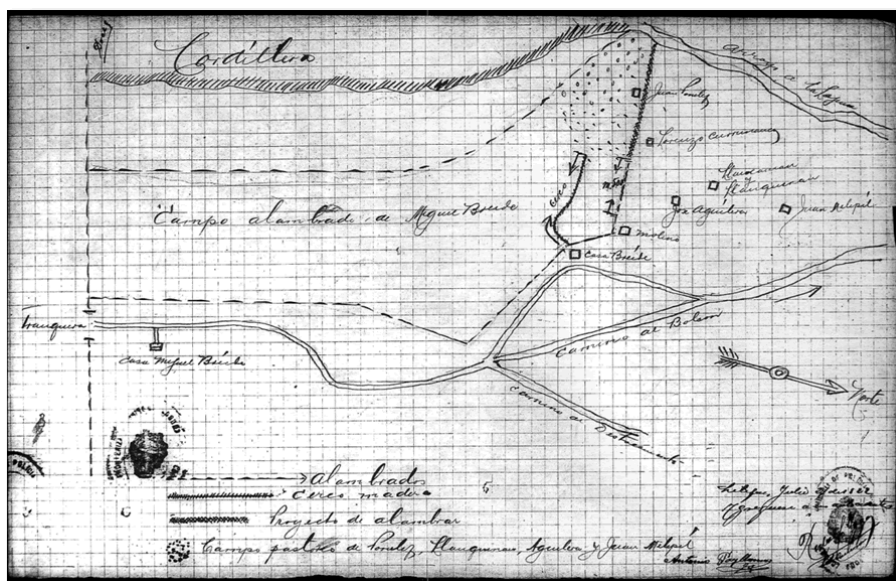 Cordillera
Arroyo a la Laguna
Juan
Lorenzo
y
Llanquenao
José Aguilera
Juan Melipil
Campo alambrado de Miguel Breide
cerco
Molino
Casa Breide
Tranquera
Casa Miguel Breide
Camino al Bolson
Camino al Destacamento
Norte
Alambrados
Cerco madera
Proyecto de alambrar
Campo pastoreo de Llanquenao, Aguilera y Juan Melipil
Julio
Antonio